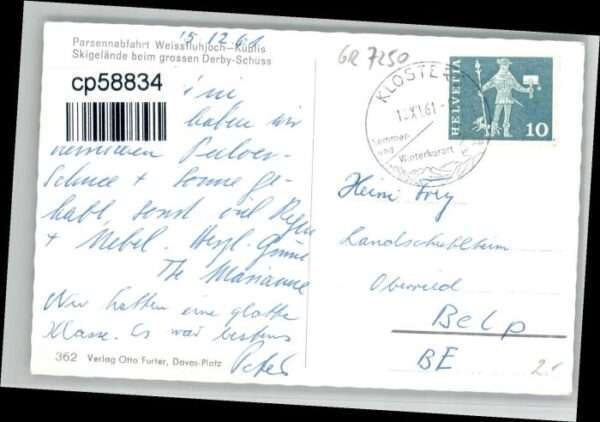 15.12.61
Parsennabfahrt Weissfluhjoch-Küblis
Skigelände beim grossen Derby-Schuss
cp58834
haben wir
Pulver-
Schnee + Sonne ge-
habt, sonst viel Regen
+ Nebel. Herzl. Grüsse
Marianne
Wir hatten eine glatte
Klasse. Es war bestens
Peter
362 Verlag Otto Furter, Davos-Platz
GR 7250
KLOSTERS
XI.61
Sommer-
und Winterkurort
HELVETIA
10
Heini Frey
Landschulheim
Oberried
Belp
BE
2.-